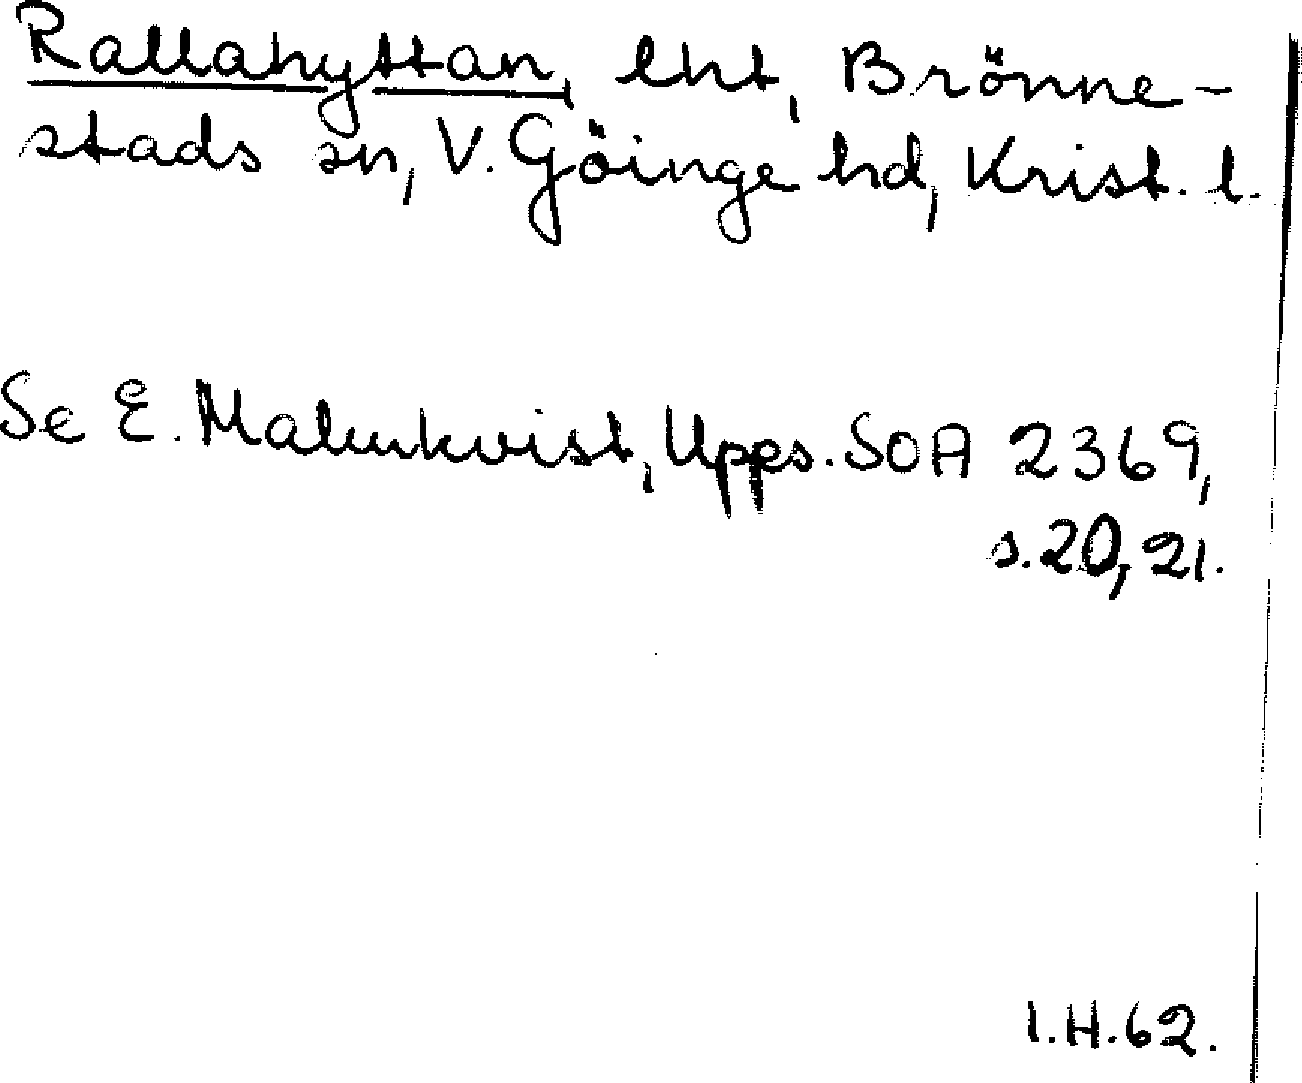 Rallahyttan, lht, Brönne-
stads sn, V. Göinge hd, Krist. l.
Se E. Malmkvist, Upps. SOA 2369,
s. 20, 21.
I.H. 62.